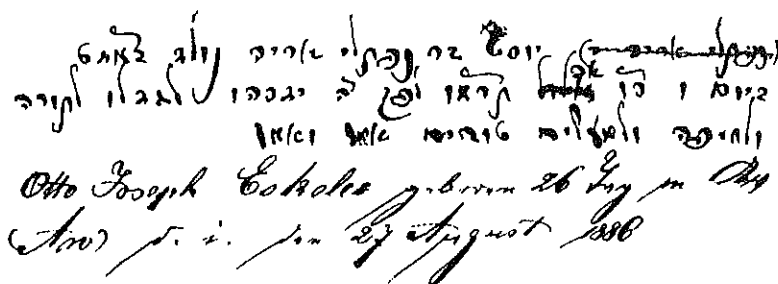 יוסף בר נפתלי אריה נולד
ביום ו כ״ו אב תרמ״ו לפ״ק ה׳ לגדלו לתורה
ולחופה ולמעשים טובים אמן ואמן
Otto Joseph geboren 26 Tag
(Aw) d. i. den 27 August 1886